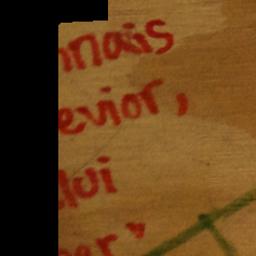 nnais
evior,
lui
per"